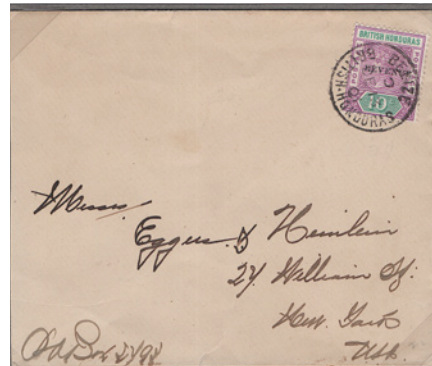 BRITISH HONDURAS
BELIZE
BRITISH HONDURAS
10
Messrs
Eggers & Heinlein
27 William St:
New York
USA.
P.O. Box 2798